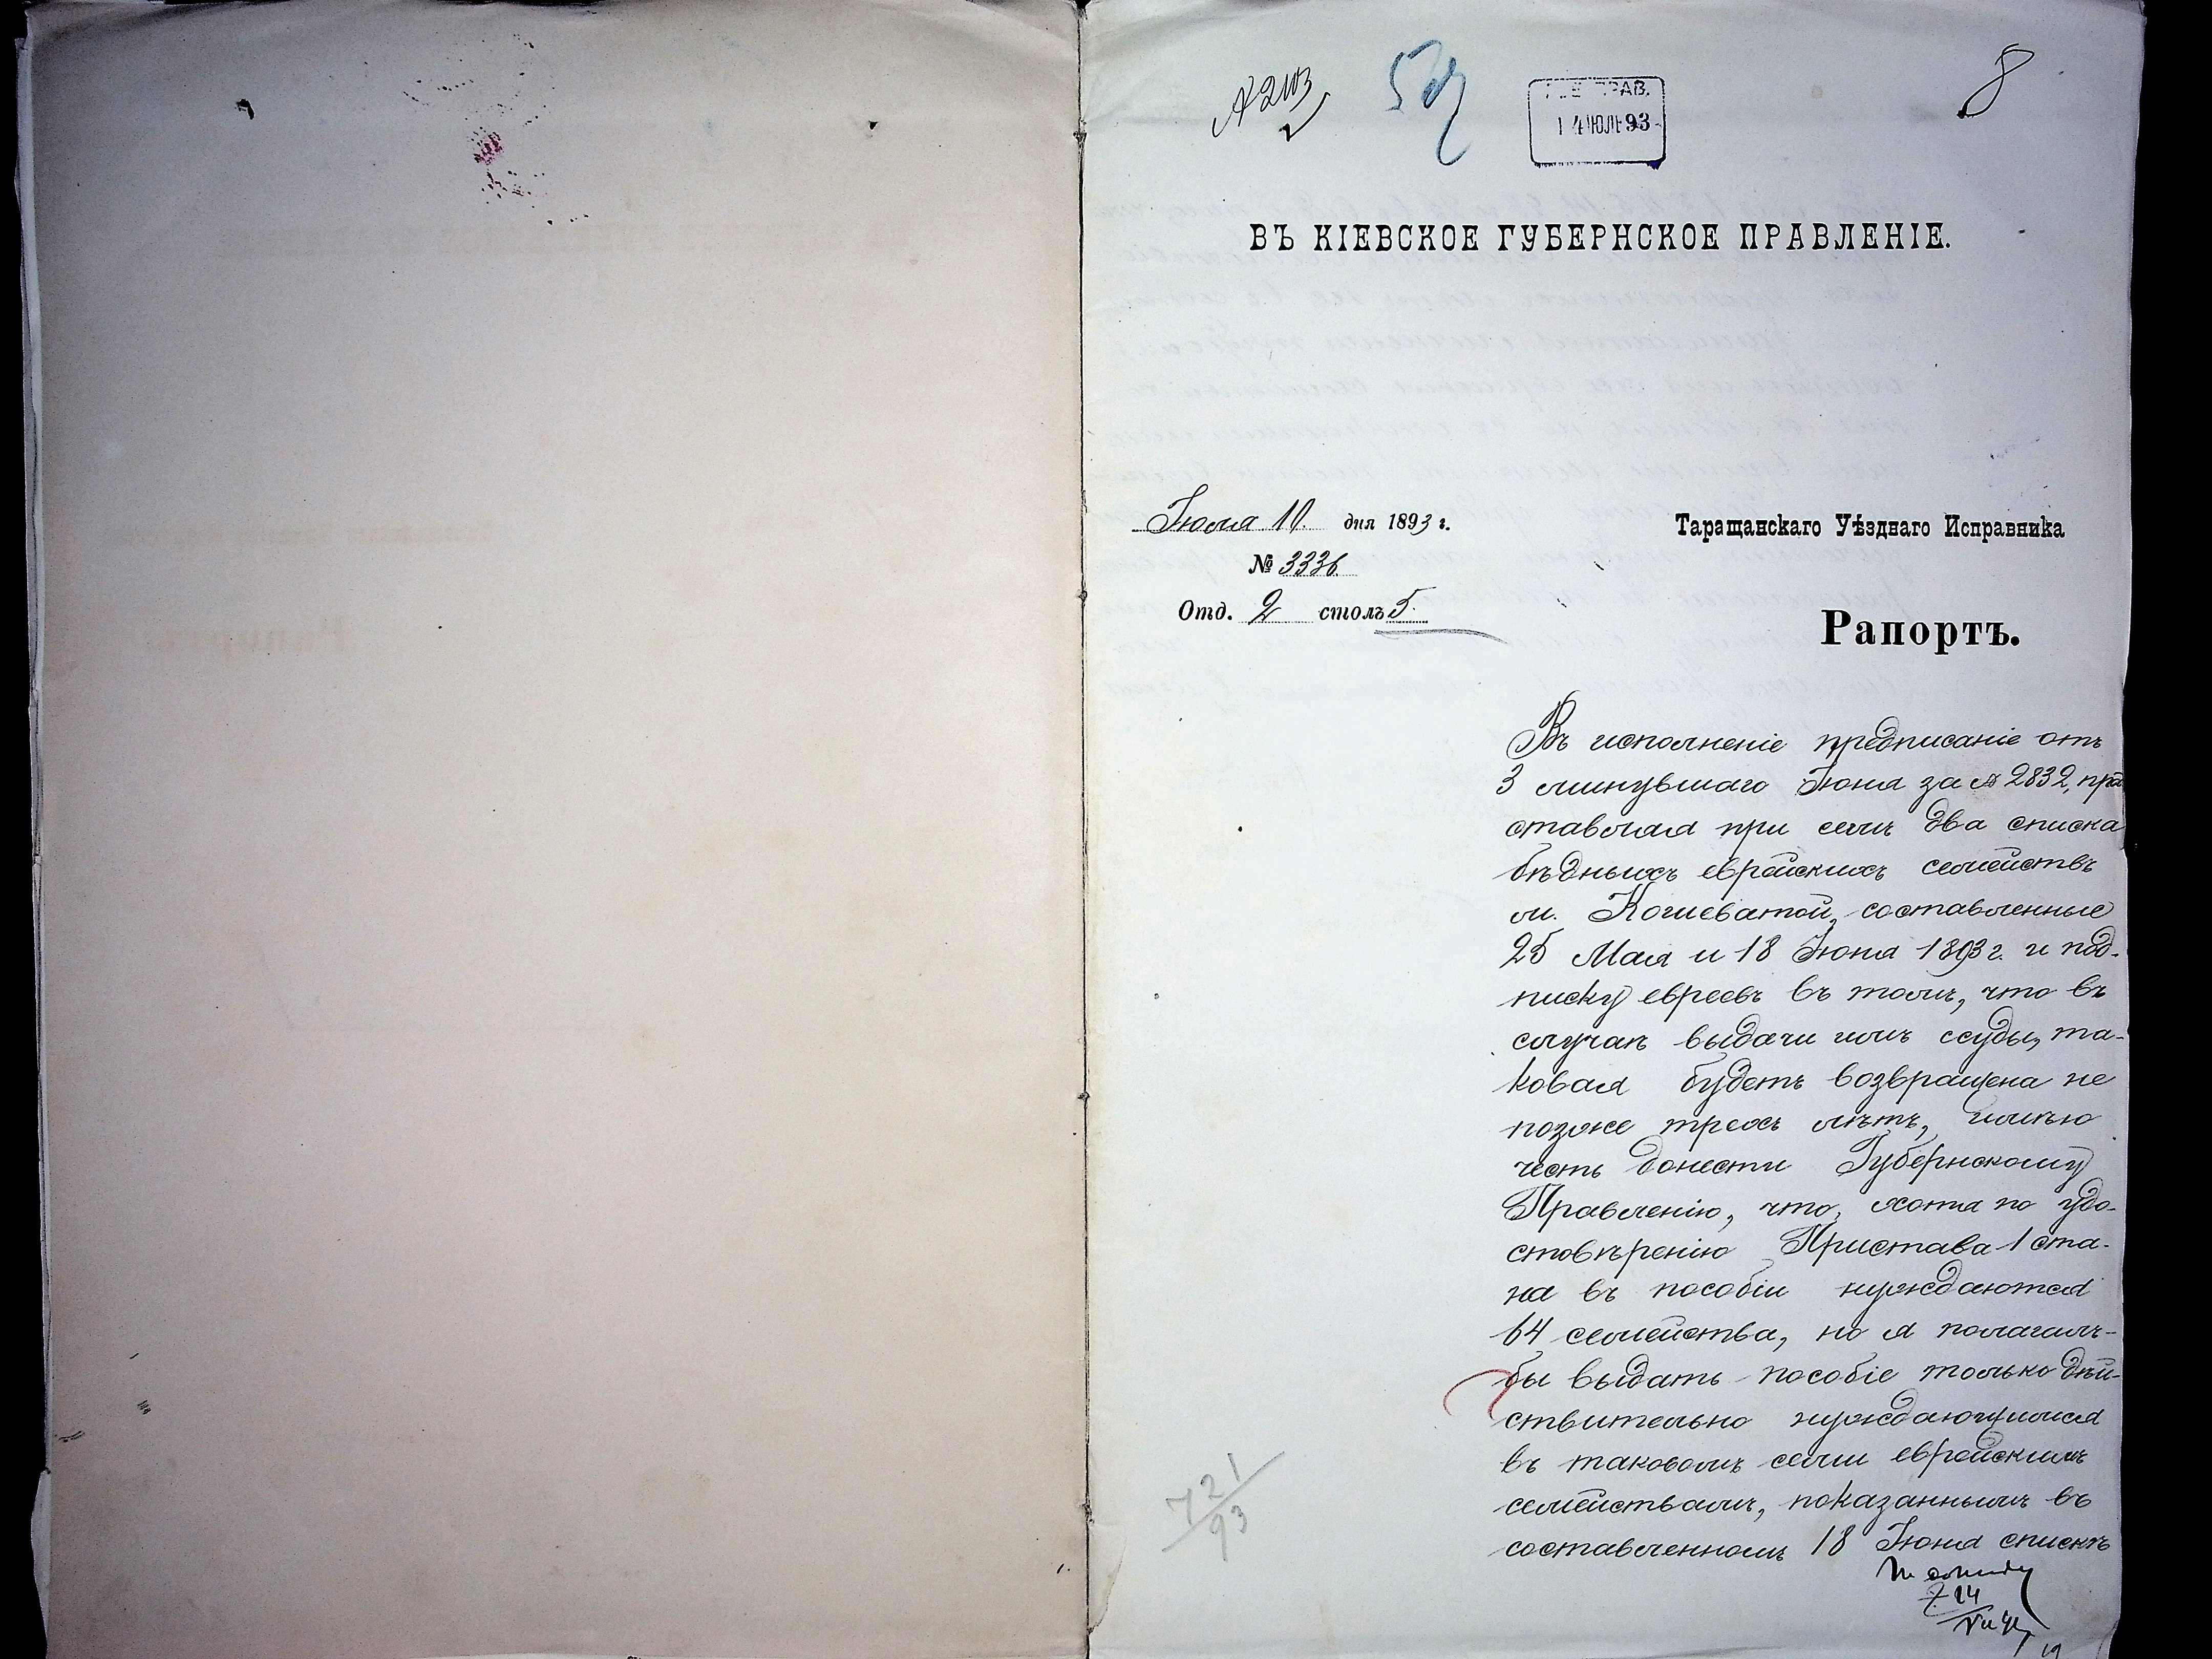 № 2103
8
ГУБ. ПРАВ.
14 ІЮЛ 93
ВЪ КІЕВСКОЕ ГУБЕРНСКОЕ ПРАВЛЕНІЕ.
Іюля 10. дня 1893 г.
№ 3336
Отд. 2 столъ 5.
Таращанскаго Уѣзднаго Исправника
Рапортъ.
Въ исполненіе предписаніе отъ
3 минувшаго Іюня за № 2832, пред
ставляя при семъ два списка
бѣдныхъ еврейскихъ семействъ
м. Кошеватой, составленные
25 Мая и 18 Іюня 1893 г. и под-
писку евреевъ въ томъ, что въ
случаѣ выдачи имъ ссуды, та-
ковая будетъ возвращена не
позже трехъ лѣтъ, имѣю
честь донести Губернскому
Правленію, что, хотя по удо-
стовѣренію Пристава 1 ста-
на въ пособіи нуждаются
64 семейства, но я полагалъ-
бы выдать пособіе только дѣй-
ствительно нуждающимся
въ таковомъ семи еврейскимъ
семействамъ, показаннымъ въ
составленномъ 18 Іюня спискѣ
721
93